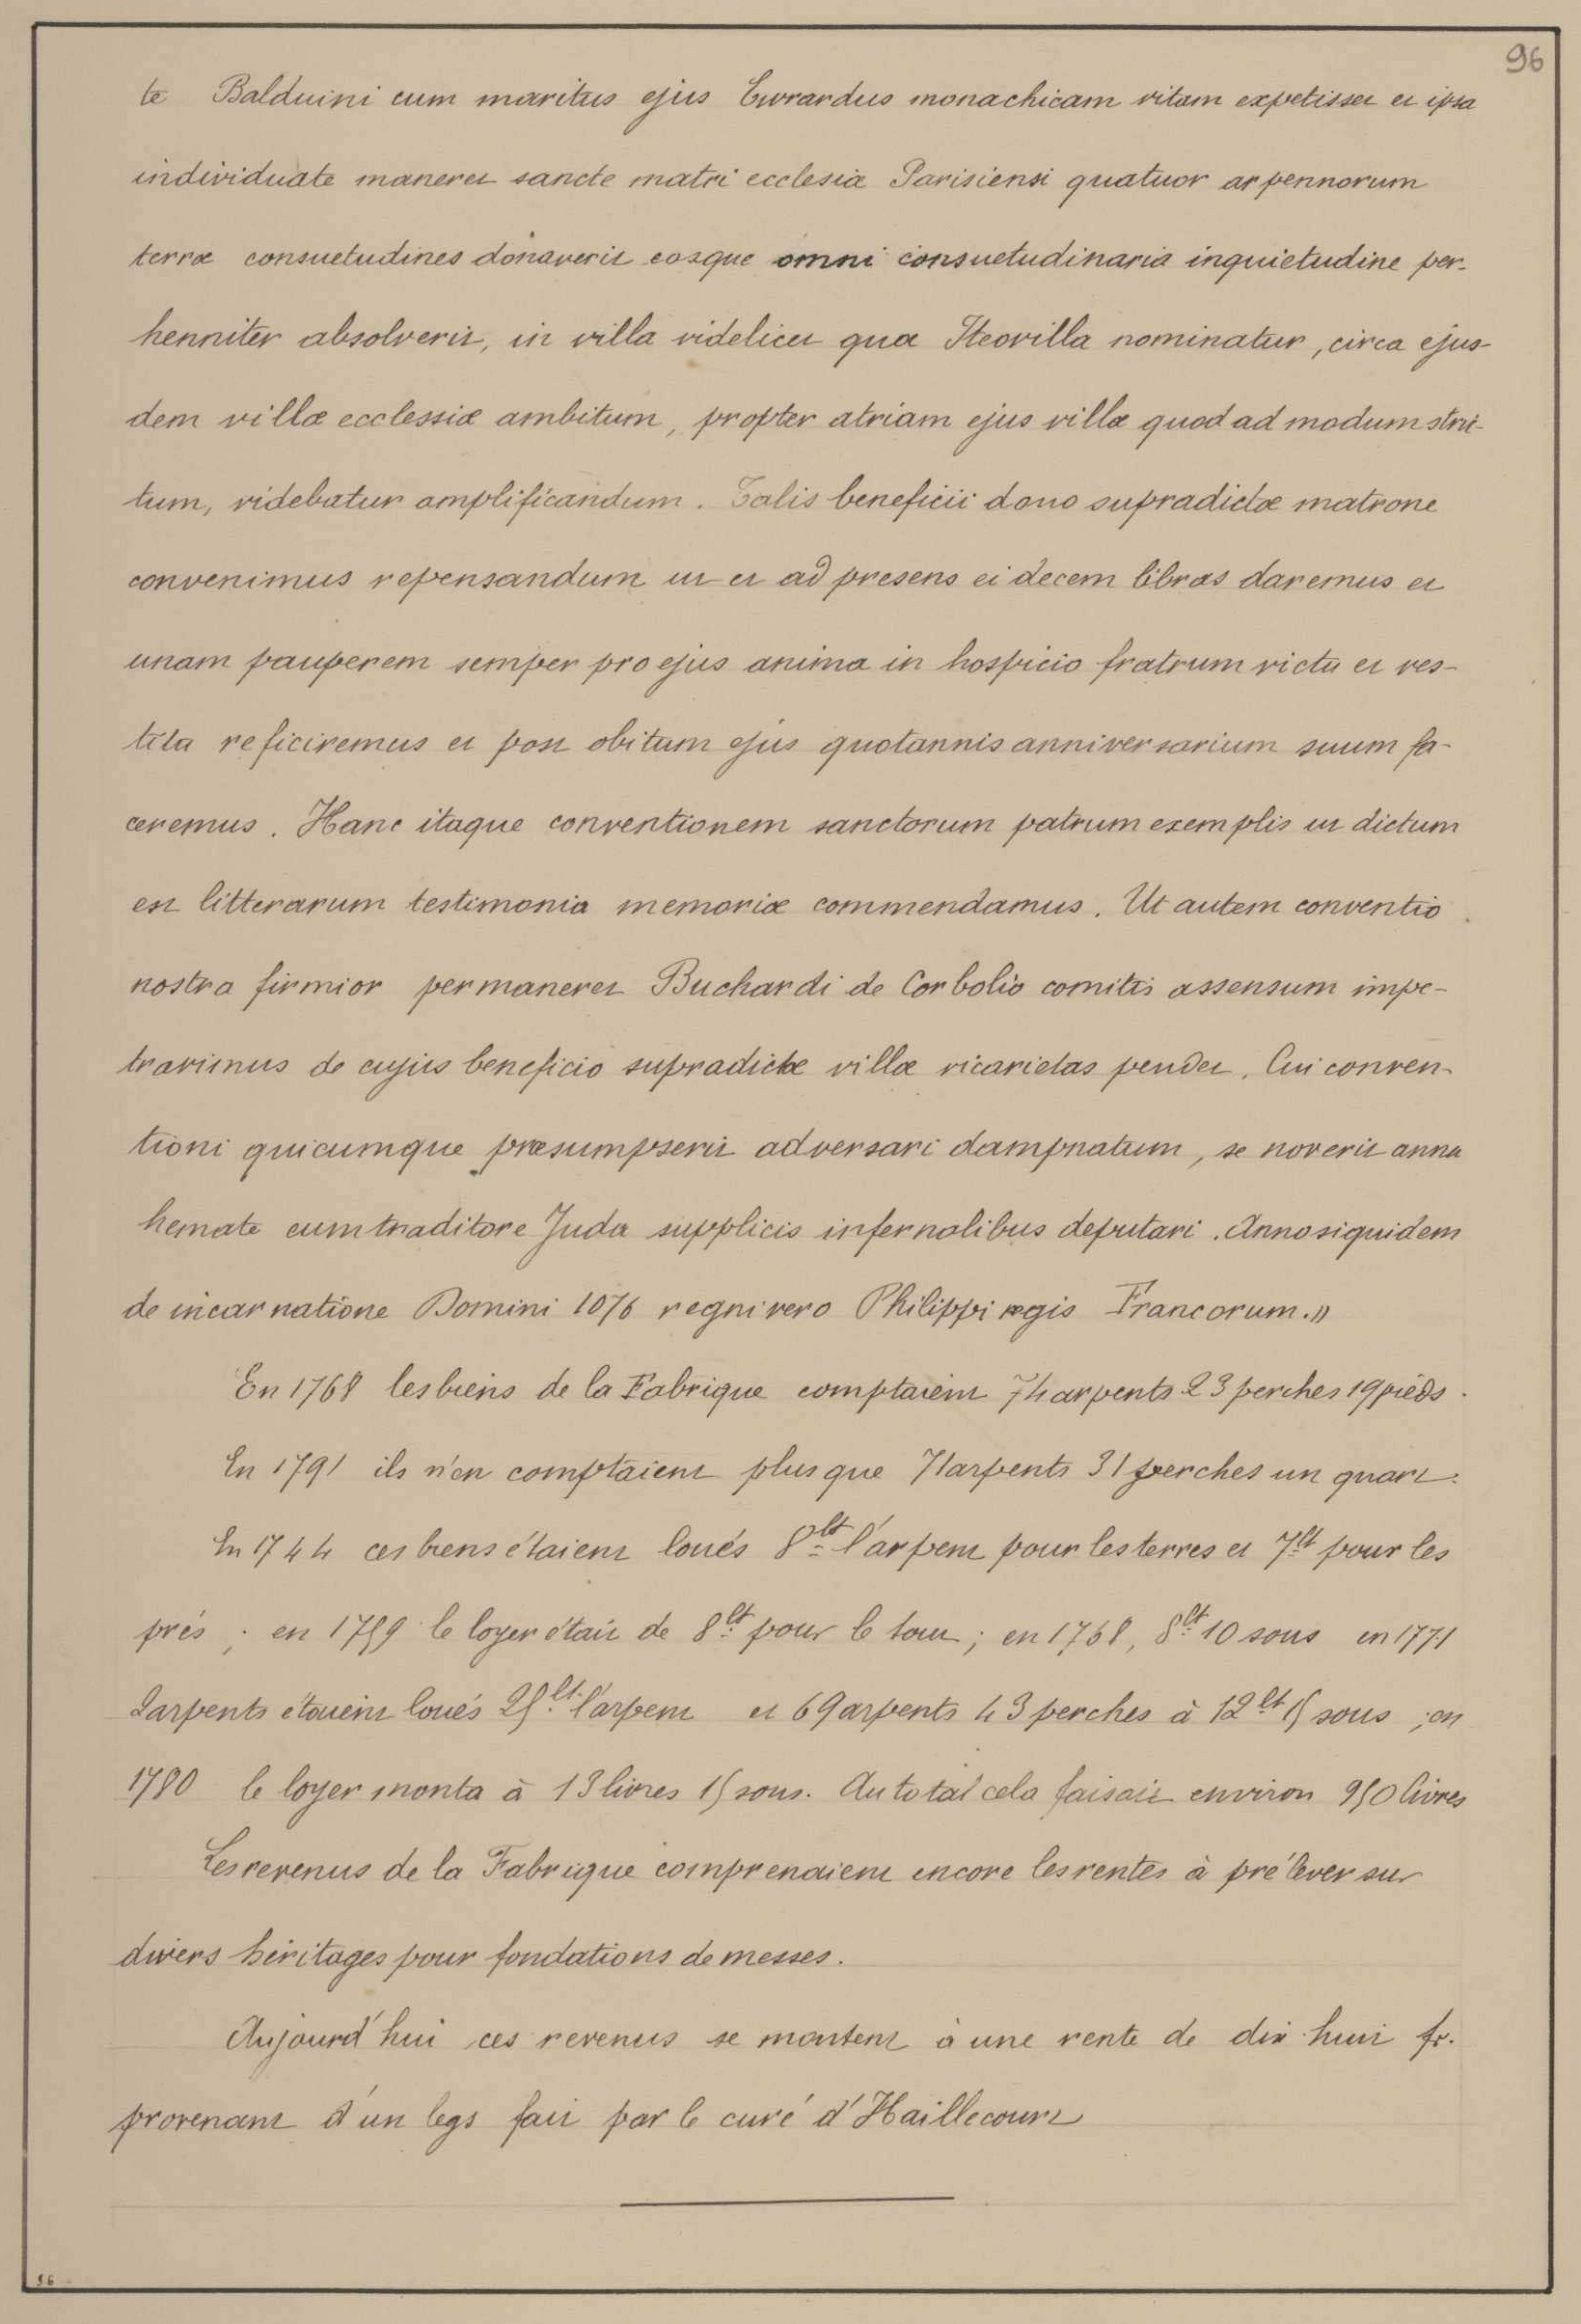 96
te Balduini cum maritus ejus Evrardus monachicam vitam expetisset et ipsa
individuate maneret sancte matri ecclesiæ Parisiensi quatuor arpennorum
terræ consuetudines donaverit eosque omni consuetudinaria inquietudine per-
henniter absolverit, in villa videlicet quæ Iteovilla nominatur, circa ejus-
dem villæ ecclessiæ ambitum, propter atriam ejus villæ quod ad modum stric-
tum, videbatur amplificandum. Talis beneficii dono supradictæ matrone
convenimus repensandum ut et ad presens ei decem libras daremus et
unam pauperem semper pro ejus anima in hospicio fratrum victu et ves-
titu reficiremus et post obitum ejus quotannis anniversarium suum fa-
ceremus. Hanc itaque conventionem sanctorum patrum exemplis ut dictum
est litterarum testimonia memoriæ commendamus. Ut autem conventio
nostra firmior permaneret Buchardi de Corbolio comitis assensum impe-
travimus de cujus beneficio supradictæ villæ vicarietas pendet. Cui conven-
tioni quicumque præsumpserit adversari dampnatum, se noverit anna
hemate cum traditore Juda supplicis infernalibus deputari. Anno siquidem
de incarnatione Domini 1076 regni vero Philippi regis Francorum.»
En 1768 les biens de la Fabrique comptaient 74 arpents 23 perches 19 pieds.
En 1791 ils n'en comptaient plus que 71 arpents 31 perches un quart.
En 1744 ces biens étaient loués 8lt l'arpent pour les terres et 7lt pour les
prés; en 1759 le loyer était de 8lt pour le tout; en 1768, 8lt 10 sous en 1771
2 arpents étaient loués 25lt l'arpent et 69 arpents 43 perches à 12lt 15 sous; en
1780 le loyer monta à 13 livres 15 sous. Au total cela faisait environ 950 livres
Les revenus de la Fabrique comprenaient encore les rentes à prélever sur
divers héritages pour fondations de messes.
Aujourd'hui ces revenus se montent à une rente de dix huit fr.
provenant d'un legs fait par le curé d'Haillecourt
96